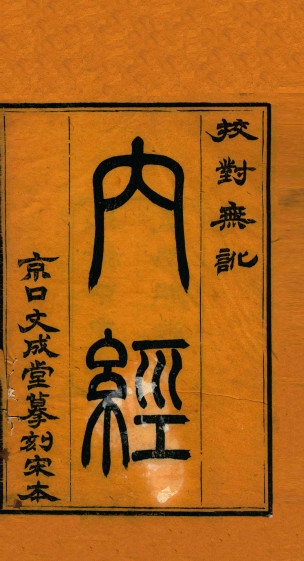 校對無訛
內經
京口文成堂摹刻宋本